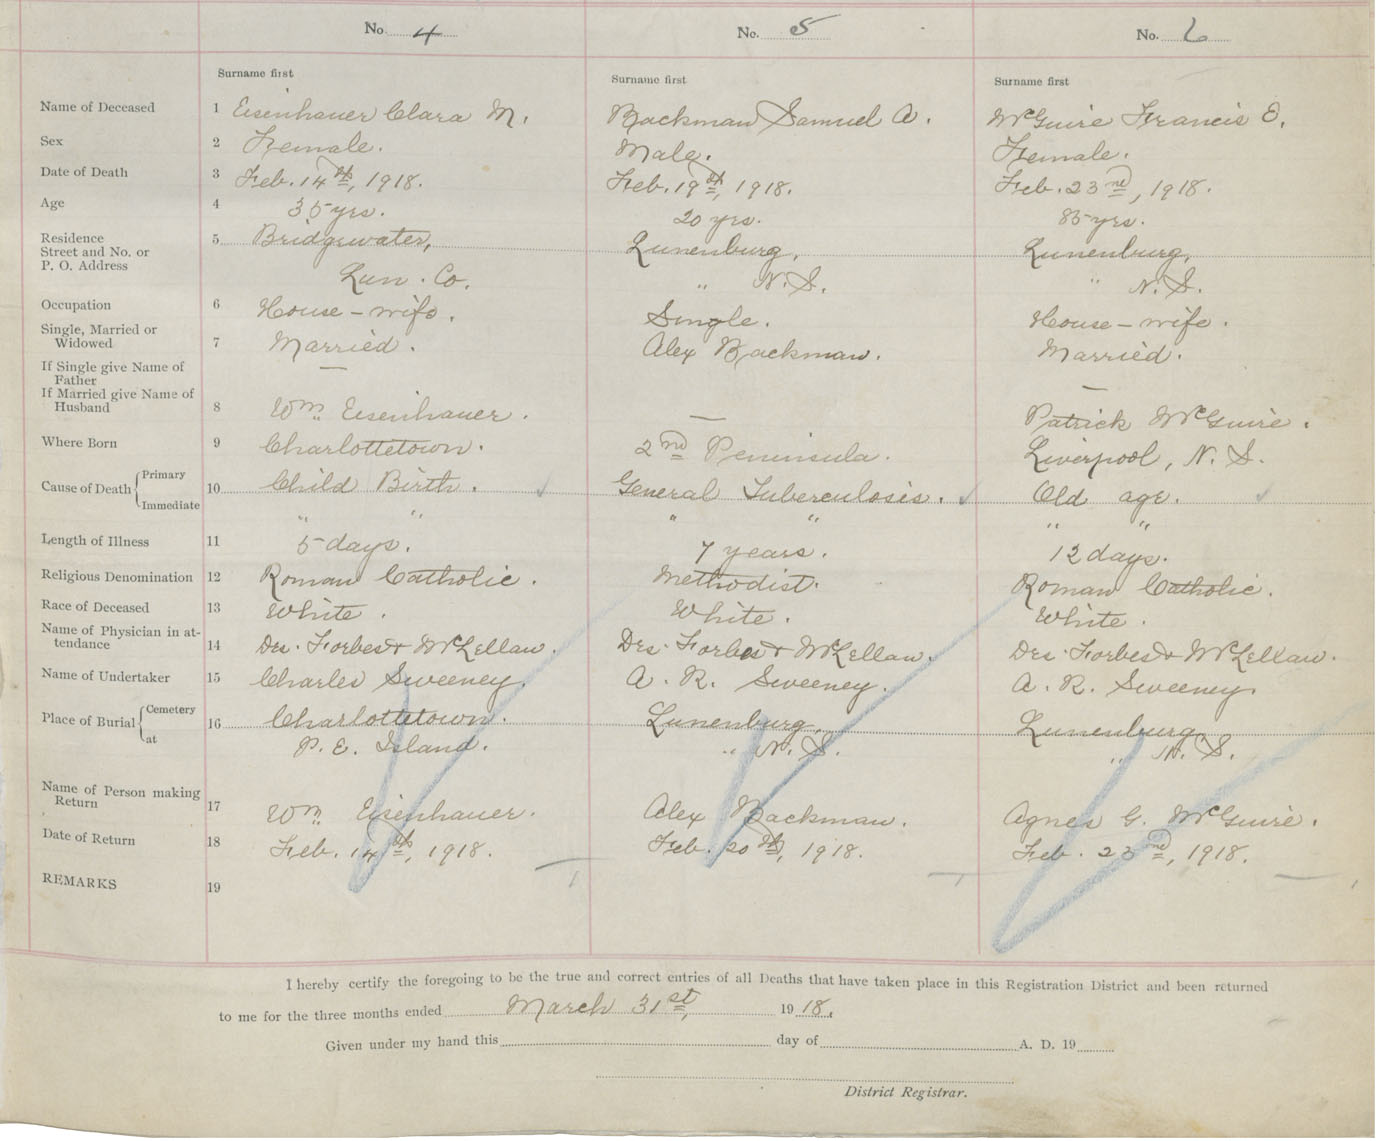 No. 4 No. 5 No. 6
Surname first Surname first Surname first
Name of Deceased 1 Eisenhauer Clara M. Backman Samuel A. McGuire Francis E.
Sex 2 Female. Male. Female.
Date of Death 3 Feb. 14th, 1918. Feb. 19th, 1918. Feb. 23nd, 1918.
Age 4 35 yrs. 20 yrs. 85 yrs.
Residence 5 Bridgewater, Lunenburg, Lunenburg,
Street and No. or
P. O. Address Lun. Co. " N.S. " N.S.
Occupation 6 House-wife. Single. House-wife.
Single, Married or
Widowed 7 Married. Alex Backman. Married.
If Single give Name of
Father — —
If Married give Name of
Husband 8 Wm. Eisenhauer. — Patrick McGuire.
Where Born 9 Charlottetown. 2nd Peninsula. Liverpool, N.S.
Primary
Cause of Death 10 Child Birth. General Tuberculosis. Old age.
Immediate " " " " " "
Length of Illness 11 5 days. 7 years. 12 days.
Religious Denomination 12 Roman Catholic. Methodist. Roman Catholic.
Race of Deceased 13 White. White. White.
Name of Physician in at-
tendance 14 Drs. Forbes & McLellan. Drs. Forbes & McLellan. Drs. Forbes & McLellan.
Name of Undertaker 15 Charles Sweeney. A. R. Sweeney. A. R. Sweeney.
Cemetery
Place of Burial 16 Charlottetown. Lunenburg, Lunenburg,
at P. E. Island. " N.S. " N.S.
Name of Person making
Return 17 Wm. Eisenhauer. Alex Backman. Agnes G. McGuire.
Date of Return 18 Feb. 14th, 1918. Feb. 20th, 1918. Feb. 23nd, 1918.
REMARKS 19
I hereby certify the foregoing to be the true and correct entries of all Deaths that have taken place in this Registration District and been returned
to me for the three months ended March 31st, 1918.
Given under my hand this day of A. D. 19
District Registrar.